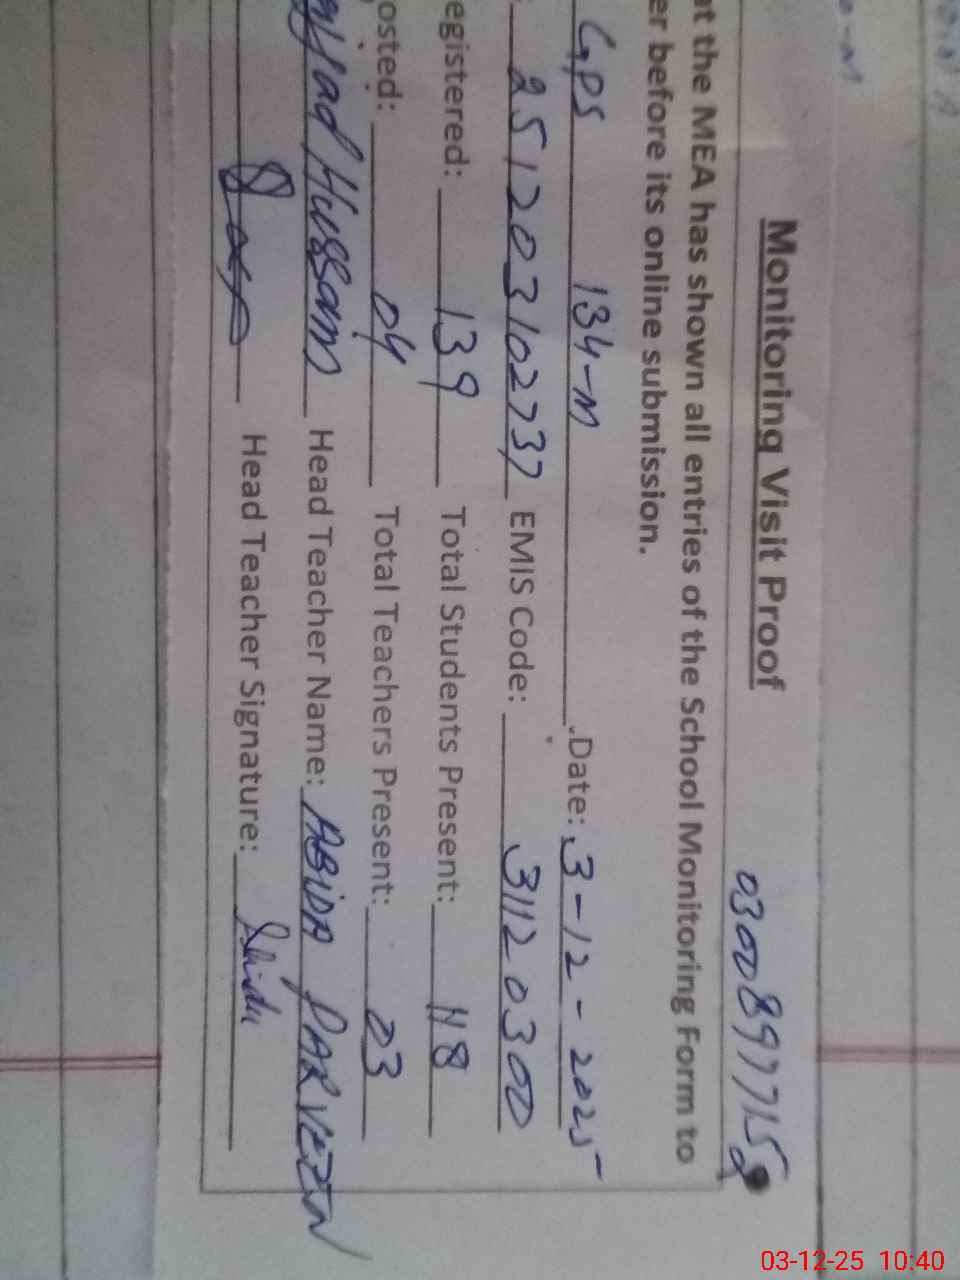 Monitoring Visit Proof
03008977158
at the MEA has shown all entries of the School Monitoring Form to
er before its online submission.
GPS 134-M .Date: 3-12-2025
251203102737 EMIS Code: 31120300
egistered: 139 Total Students Present: 118
osted: 04 Total Teachers Present: 03
Hussam Head Teacher Name: ABIDA PARVEEN
Head Teacher Signature: Abida
03-12-25 10:40